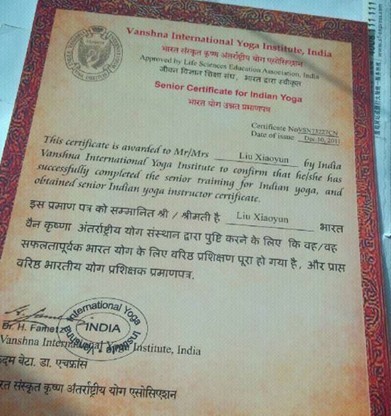 Vanshna International Yoga Institute, India
भारत संस्कृत कृष्ण अंतर्राष्ट्रीय योग एसोसिएशन
Approved by Life Sciences Education Association, India
जीवन विज्ञान शिक्षा संघ, भारत द्वारा स्वीकृत
Senior Certificate for Indian Yoga
भारत योग उन्नत प्रमाणपत्र
Certificate No
Date of issue Dec.16, 2011
This certificate is awarded to Mr/Mrs Liu Xiaoyun by India
Vanshna International Yoga Institute to confirm that he/she has
successfully completed the senior training for Indian yoga, and
obtained senior Indian yoga instructor certificate.
इस प्रमाण पत्र को सम्मानित श्री / श्रीमती है Liu Xiaoyun भारत
वैन कृष्णा अंतर्राष्ट्रीय योग संस्थान द्वारा पुष्टि करने के लिए कि वह/वह
सफलतापूर्वक भारत योग के लिए वरिष्ठ प्रशिक्षण पूरा हो गया है, और प्राप्त
वरिष्ठ भारतीय योग प्रशिक्षक प्रमाणपत्र.
International Yoga
INDIA
Dr. H. Fametz
Vanshna International Yoga Institute, India
बेटा. डा. एचफ्रांस
संस्कृत कृष्ण अंतर्राष्ट्रीय योग एसोसिएशन